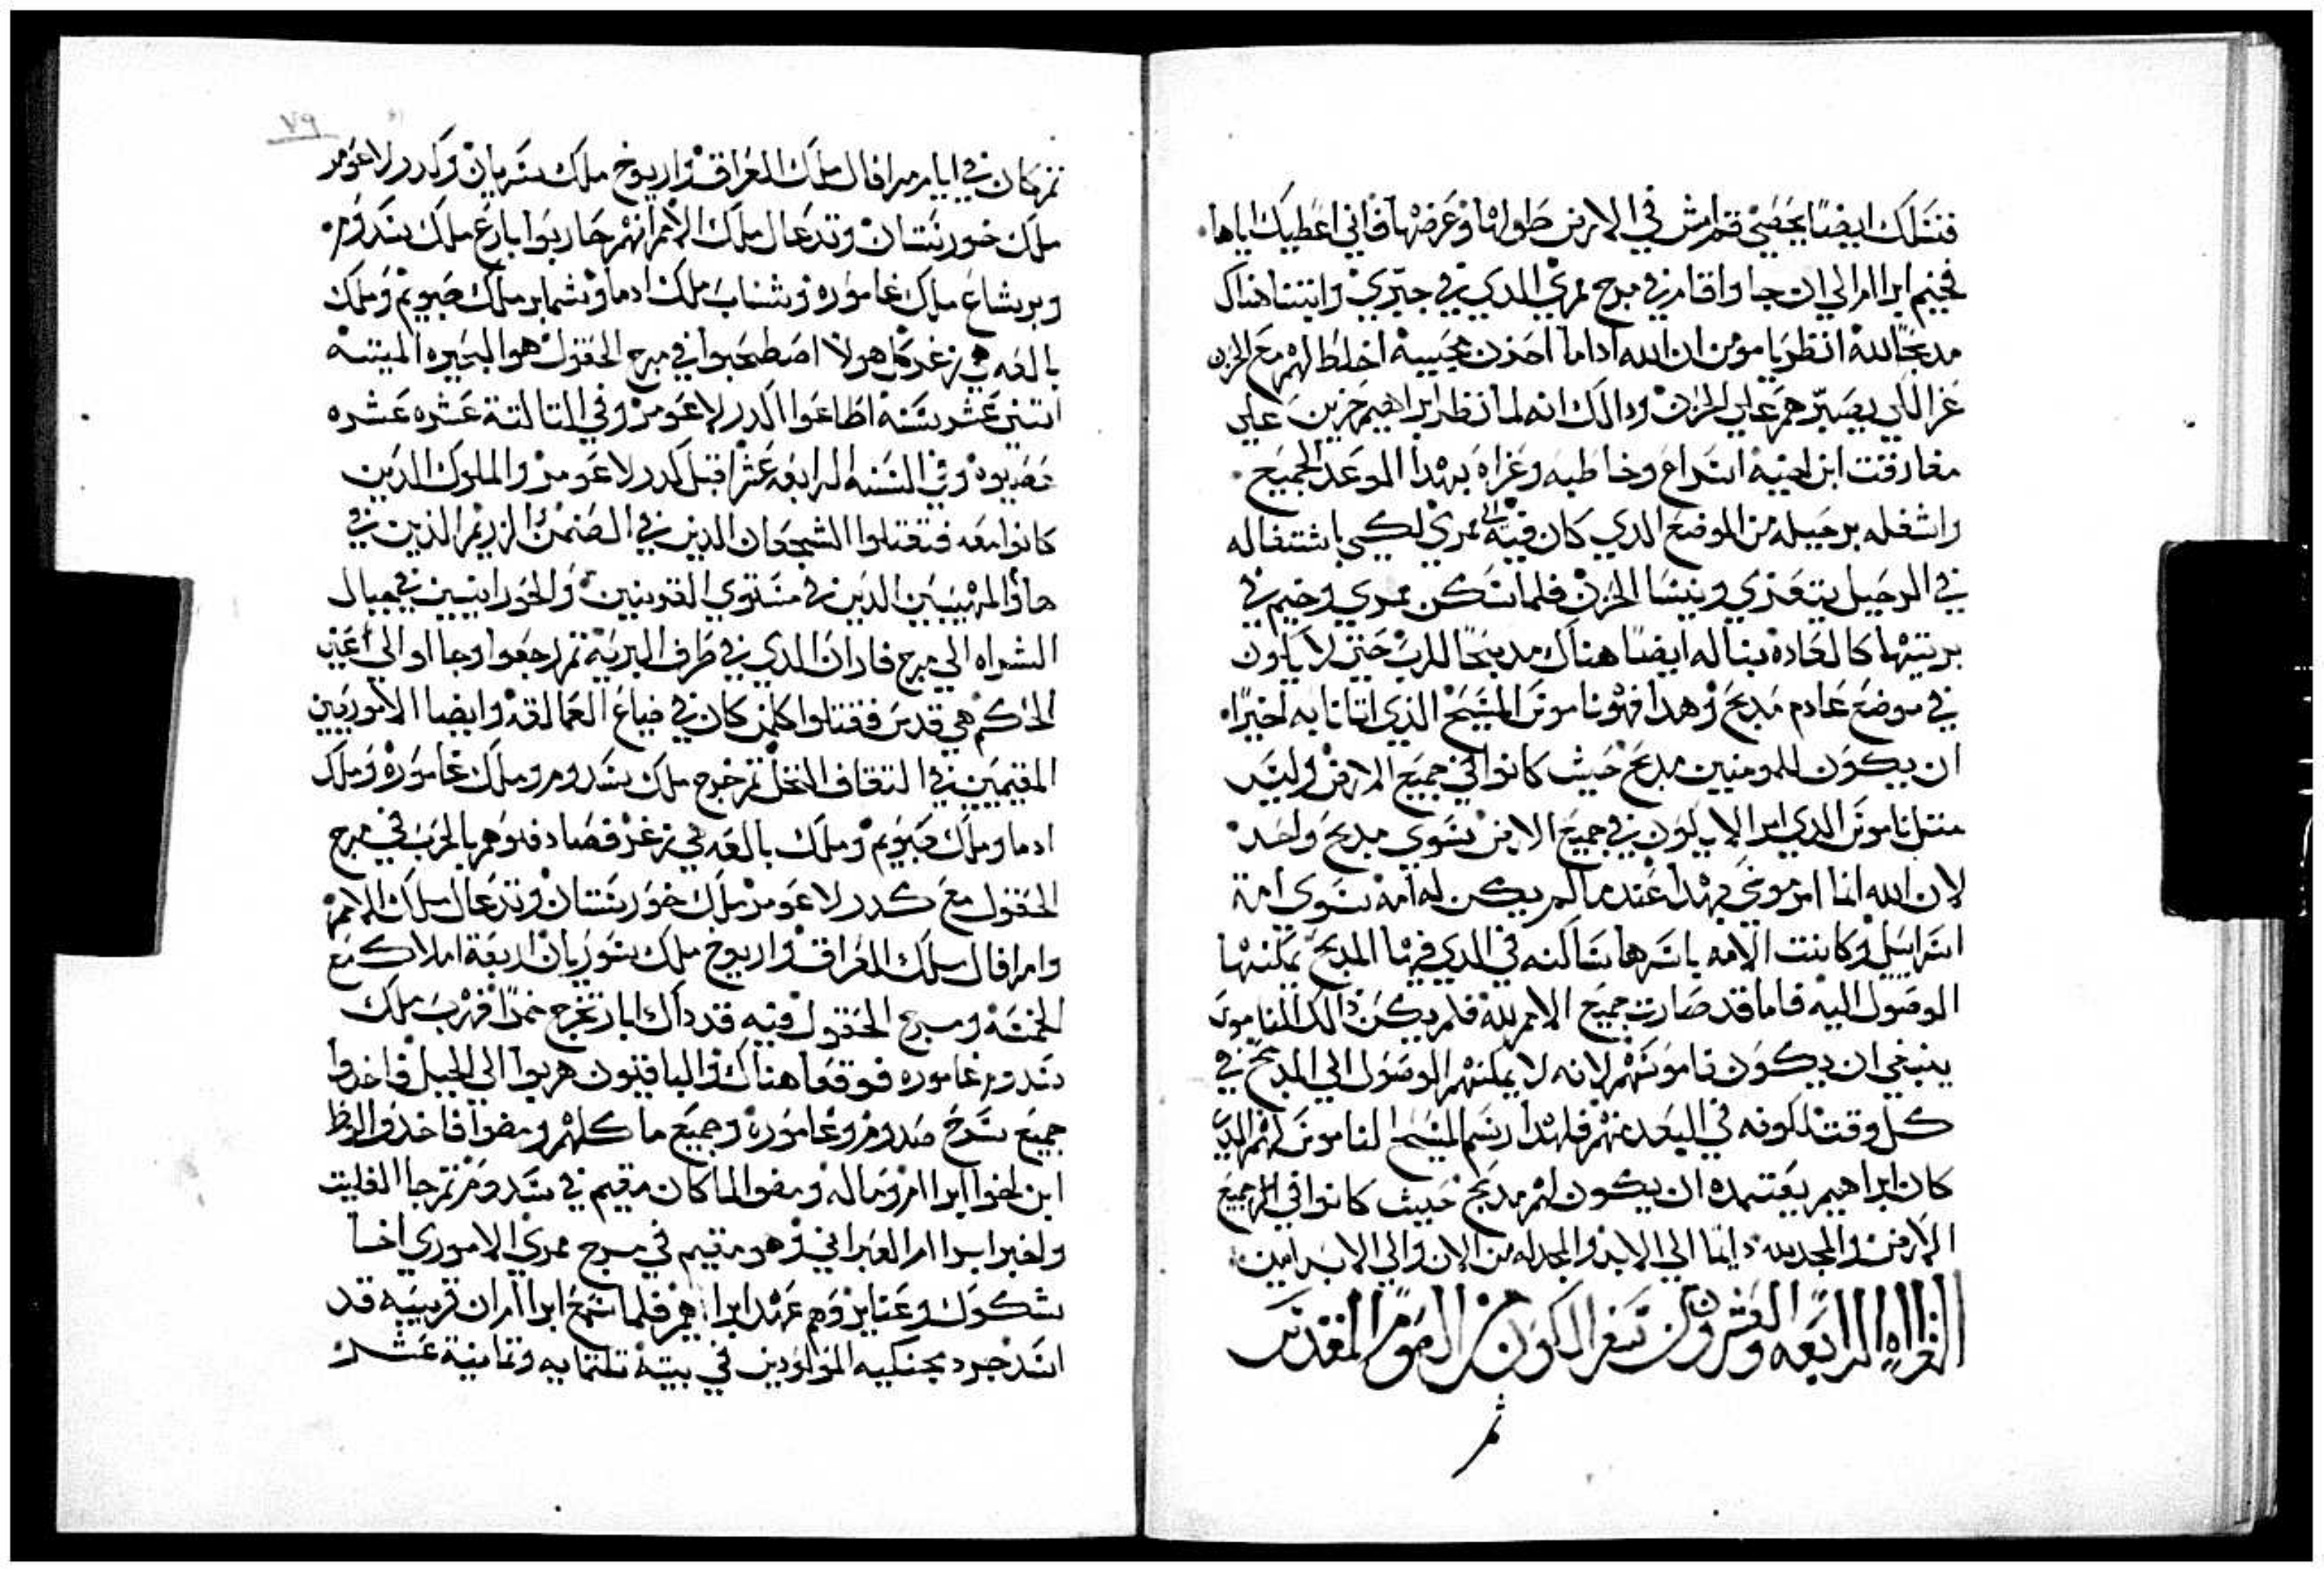 فنسلك ايضا يحصي قم امش في الارض طولها وعرضها فاني اعطيك اياها
فخيم ابراام الي ان جا واقام في مرج ممري الدي في حبري وابتنا هناك
مدبحا لله انظر يا مومن ان الله اداما احزن محبيه اخلط لهم مع الحزن
عزا لكي يصبرهم علي الحزن ودالك انه لما نظر ابراهيم حزين علي
مفارقت ابن اخيه اسراع وخاطبه وعزاه بهدا الموعد الجميع
واشغله برحيله من الموضع الدي كان فيه الي ممري لكي باشتغاله
في الرحيل يتعزي وينسا الحزن فلما سكن ممري وخيم في
بريتها كالعاده بنا له ايضا هناك مدبحا للرب حتي لا ياون
في موضع عادم مدبح وهدا فهو ناموس المسيح الذي اتانا به اخيرا
ان يكون للمومنين مدبح حيث كانوا في جميع الارض وليس
متل ناموس الدي امر الا يكون في جميع الارض سوي مدبح واحد
لان الله انما امر موسي بهدا عندما لم يكن له امه سوي امة
اسراييل وكانت الامه باسرها ساكنه في الدي فيها المدبح يمكنها
الوصول اليه فاما قد صارت جميع الامم لله فلم يكن دالك الناموس
ينبغي ان يكون ناموسهم لانه لا يمكنهم الوصول الي المدبح في
كل وقت لكونه في البعد منهم فلهدا رسم المسيح الناموس لهم الدي
كان ابراهيم يعتمده ان يكون لهم مدبح حيث كانوا في جميع
الارض والمجد لله دايما الي الابد والمجد له من الان والي الابد امين
القراه الرابعه والعشرون من سفر الكون من الصوم المقدس
ثم
٧٩
تم كان في ايام مرافال ملك العراق واريوخ ملك سريان وكدرلاعومر
ملك خورستان وتدعال ملك الامم انهم حاربوا بارع ملك سدوم
وبرشاع ملك غاموره وشناب ملك ادما وشمابر ملك صبويم وملك
بالعه هي زغر كل هولا اصطحبوا في مرج الحقول هو البحيره الميتة
اتني عشر سنه اطاعوا لكدرلاعومر وفي التالتة عشره عشره
عصيوه وفي السنه الرابعه عشر اقبل كدرلاعومر والملوك الدين
كانوا معه فقتلوا الشجعان الدين في الصنمين الزريم الذين في
هاوالمهيبين الدين في مستوي القرينين والحورانيين في جبال
الشراه الي مرج فاران الدي في طرف البريه تم رجعوا وجااو الي اعين
الحكم هي قدس فقتلوا كلمن كان في ضياع العمالقة وايضا الاموريين
المقيمين في التفاف النخل تم خرج ملك سدوم وملك غاموره وملك
ادما وملك صبويم وملك بالعه هي زغر فصادفوهم بالحرب في مرج
الحقول مع كدرلاعومر ملك خورستان وتدعال ملك الامم
وامرافال ملك العراق واريوخ ملك سوريان اربعة املاك مع
الخمسة ومرج الحقول فيه قد داك ابار تخرج خمرا فهرب ملك
سدوم غاموره فوقعوا هناك والباقيون هربوا الي الجبل واخدوا
جميع سرح صدوم وغاموره وجميع ما كلهم ومضوا فاخذوا لوط
ابن اخوا ابراام وماله ومضوا لما كان مقيم في سدوم تم جا الفليت
واخبر ابراام العبراني وهو مقيم في مرج ممري الاموري اخا
شكوك وعنابر وهم عهد ابراهيم فلما سمع ابراام ان قريبيه قد
اسر جرد بجنكيه المولودين في بيته تلتمايه وتمانية عشر